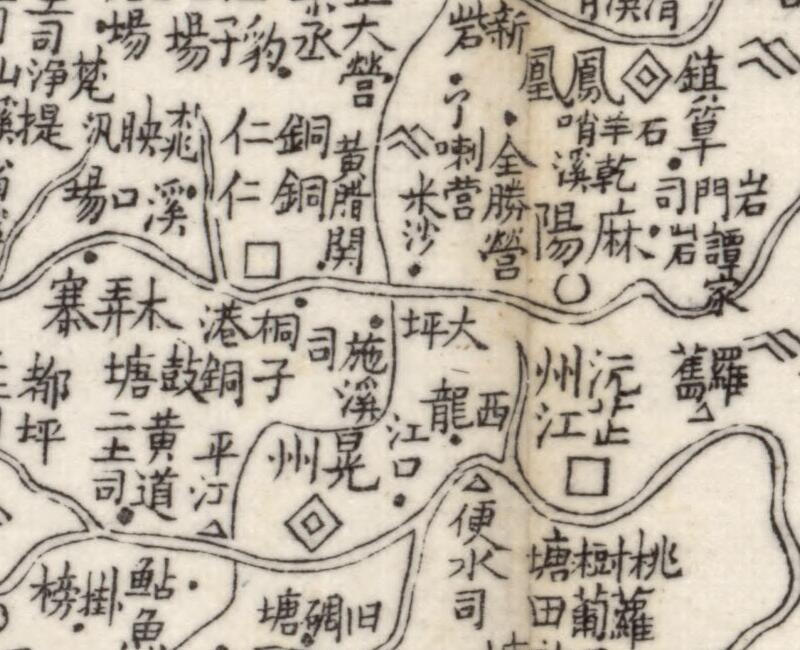 鎮筸
鳳凰
石羊哨
乾溪
岩門司
譚家
岩
麻陽
新
砦
全勝營
了喇營
米沙
大營
黃腊関
銅仁
銅仁
豹子場
丞
桃映汛
溪口場
淨
土司
提
木弄寨
桐子
港銅鼓塘
施溪司
大坪
西龍
江口
晃州
平汀
黃道二土司
都坪
沅州
芷江
羅舊
便水司
桃樹塘
蘿蔔田
旧碙塘
鮎魚
掛榜